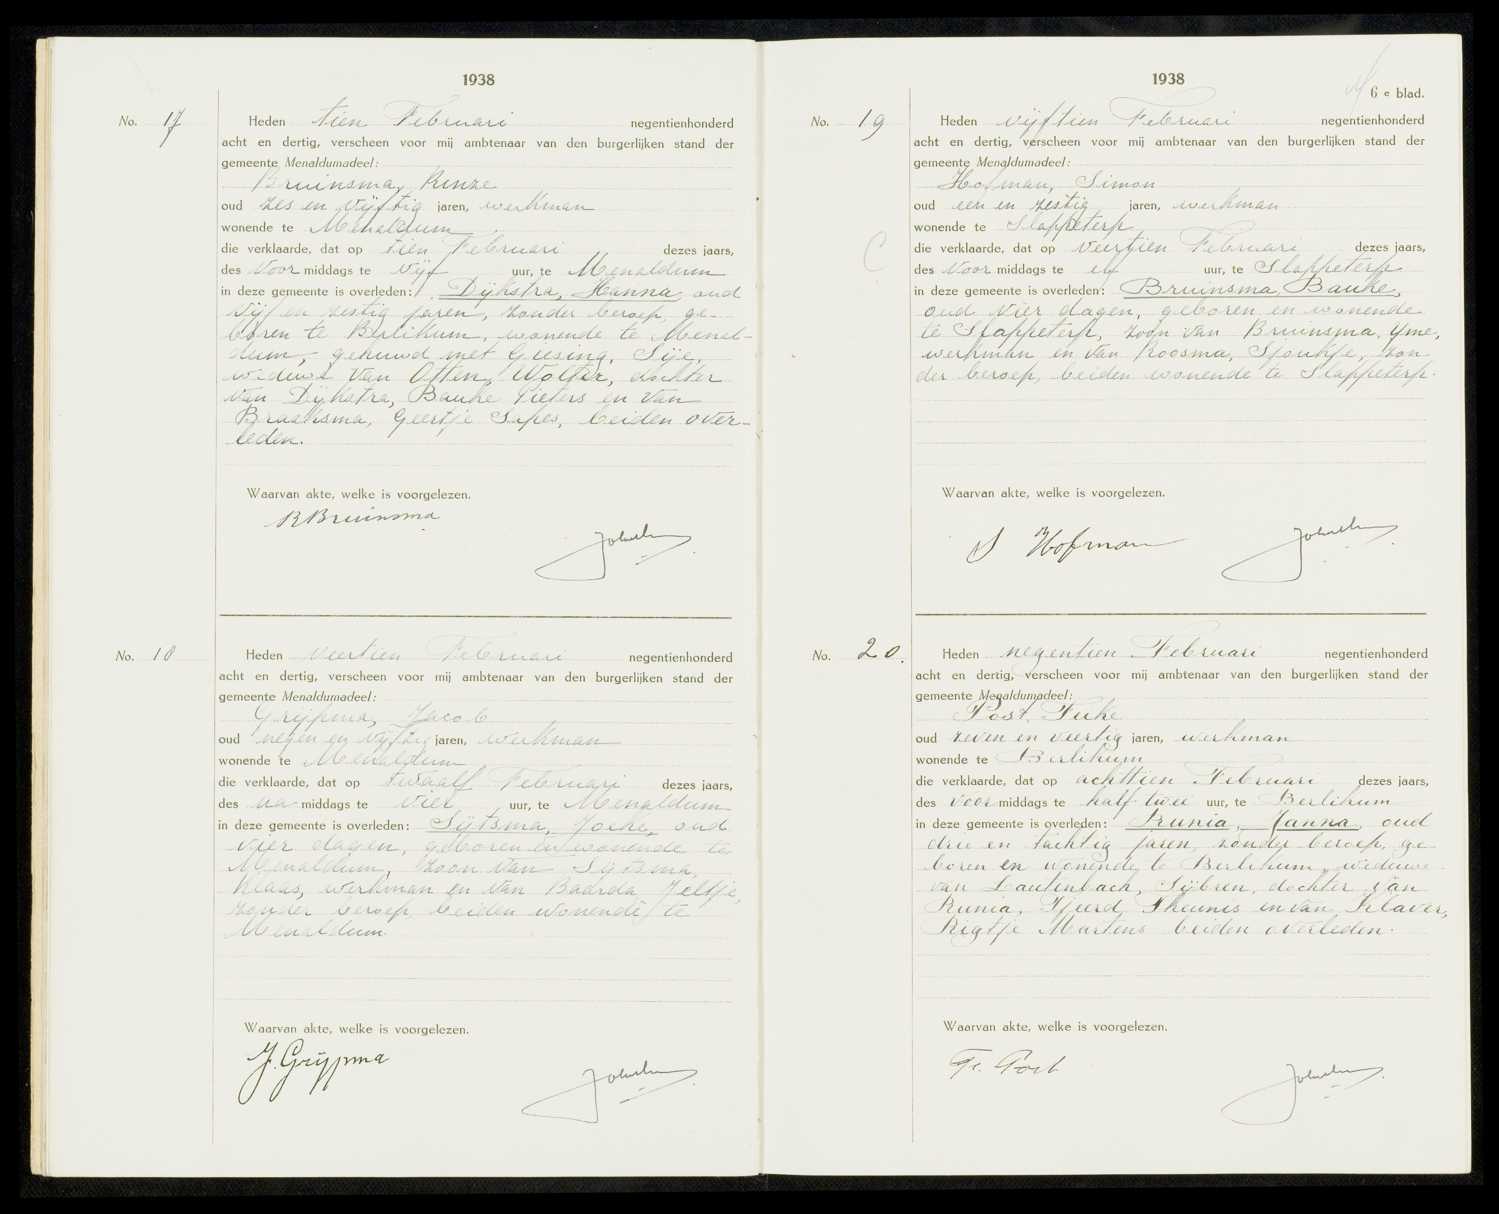 1938
No. 17
Heden tien Februari negentienhonderd
acht en dertig, verscheen voor mij ambtenaar van den burgerlijken stand der
gemeente Menaldumadeel:
Bruinsma, Rinze
oud zes en vijftig jaren, werkman
wonende te Menaldum
die verklaarde, dat op tien Februari dezes jaars,
des voor middags te vijf uur, te Menaldum
in deze gemeente is overleden: Dijkstra, Hanna, oud
vijf en zestig jaren, zonder beroep, ge-
boren te Berlikum, wonende te Menal-
dum, gehuwd met Giesing, Sije,
weduwe van Otten, Wolter, dochter
van Dijkstra, Bauke Pieters en van
Braaksma, Geertje Sipes, beiden over-
leden.
Waarvan akte, welke is voorgelezen.
R Bruinsma
No. 18
Heden veertien Februari negentienhonderd
acht en dertig, verscheen voor mij ambtenaar van den burgerlijken stand der
gemeente Menaldumadeel:
Grijpma, Jacob
oud negen en vijftig jaren, werkman
wonende te Menaldum
die verklaarde, dat op twaalf Februari dezes jaars,
des na middags te vier uur, te Menaldum
in deze gemeente is overleden: Sijtsma, Joeke, oud
vier dagen, geboren en wonende te
Menaldum, zoon van Sijtsma,
Klaas, werkman en van Baarda, Jeltje,
zonder beroep, beiden wonende te
Menaldum.
Waarvan akte, welke is voorgelezen.
J. Grijpma
1938
6e blad.
No. 19
Heden vijftien Februari negentienhonderd
acht en dertig, verscheen voor mij ambtenaar van den burgerlijken stand der
gemeente Menaldumadeel:
Hofman, Simon
oud een en zestig jaren, werkman
wonende te Slappeterp
die verklaarde, dat op veertien Februari dezes jaars,
des voor middags te elf uur, te Slappeterp
in deze gemeente is overleden: Bruinsma, Bauke,
oud vier dagen, geboren en wonende
te Slappeterp, zoon van Bruinsma, Yme,
werkman en van Roosma, Sjoukje, zon-
der beroep, beiden wonende te Slappeterp.
Waarvan akte, welke is voorgelezen.
S Hofman
No. 20.
Heden negentien Februari negentienhonderd
acht en dertig, verscheen voor mij ambtenaar van den burgerlijken stand der
gemeente Menaldumadeel:
Post, Fuke
oud zeven en veertig jaren, werkman
wonende te Berlikum
die verklaarde, dat op achttien Februari dezes jaars,
des voor middags te half twee uur, te Berlikum
in deze gemeente is overleden: Runia, Janna, oud
drie en tachtig jaren, zonder beroep, ge-
boren en wonende te Berlikum, weduwe
van Lautenbach, Sijbren, dochter van
Runia, Tjeerd Theunis en van Klaver,
Rigtje Martens beiden overleden.
Waarvan akte, welke is voorgelezen.
Fr. Post